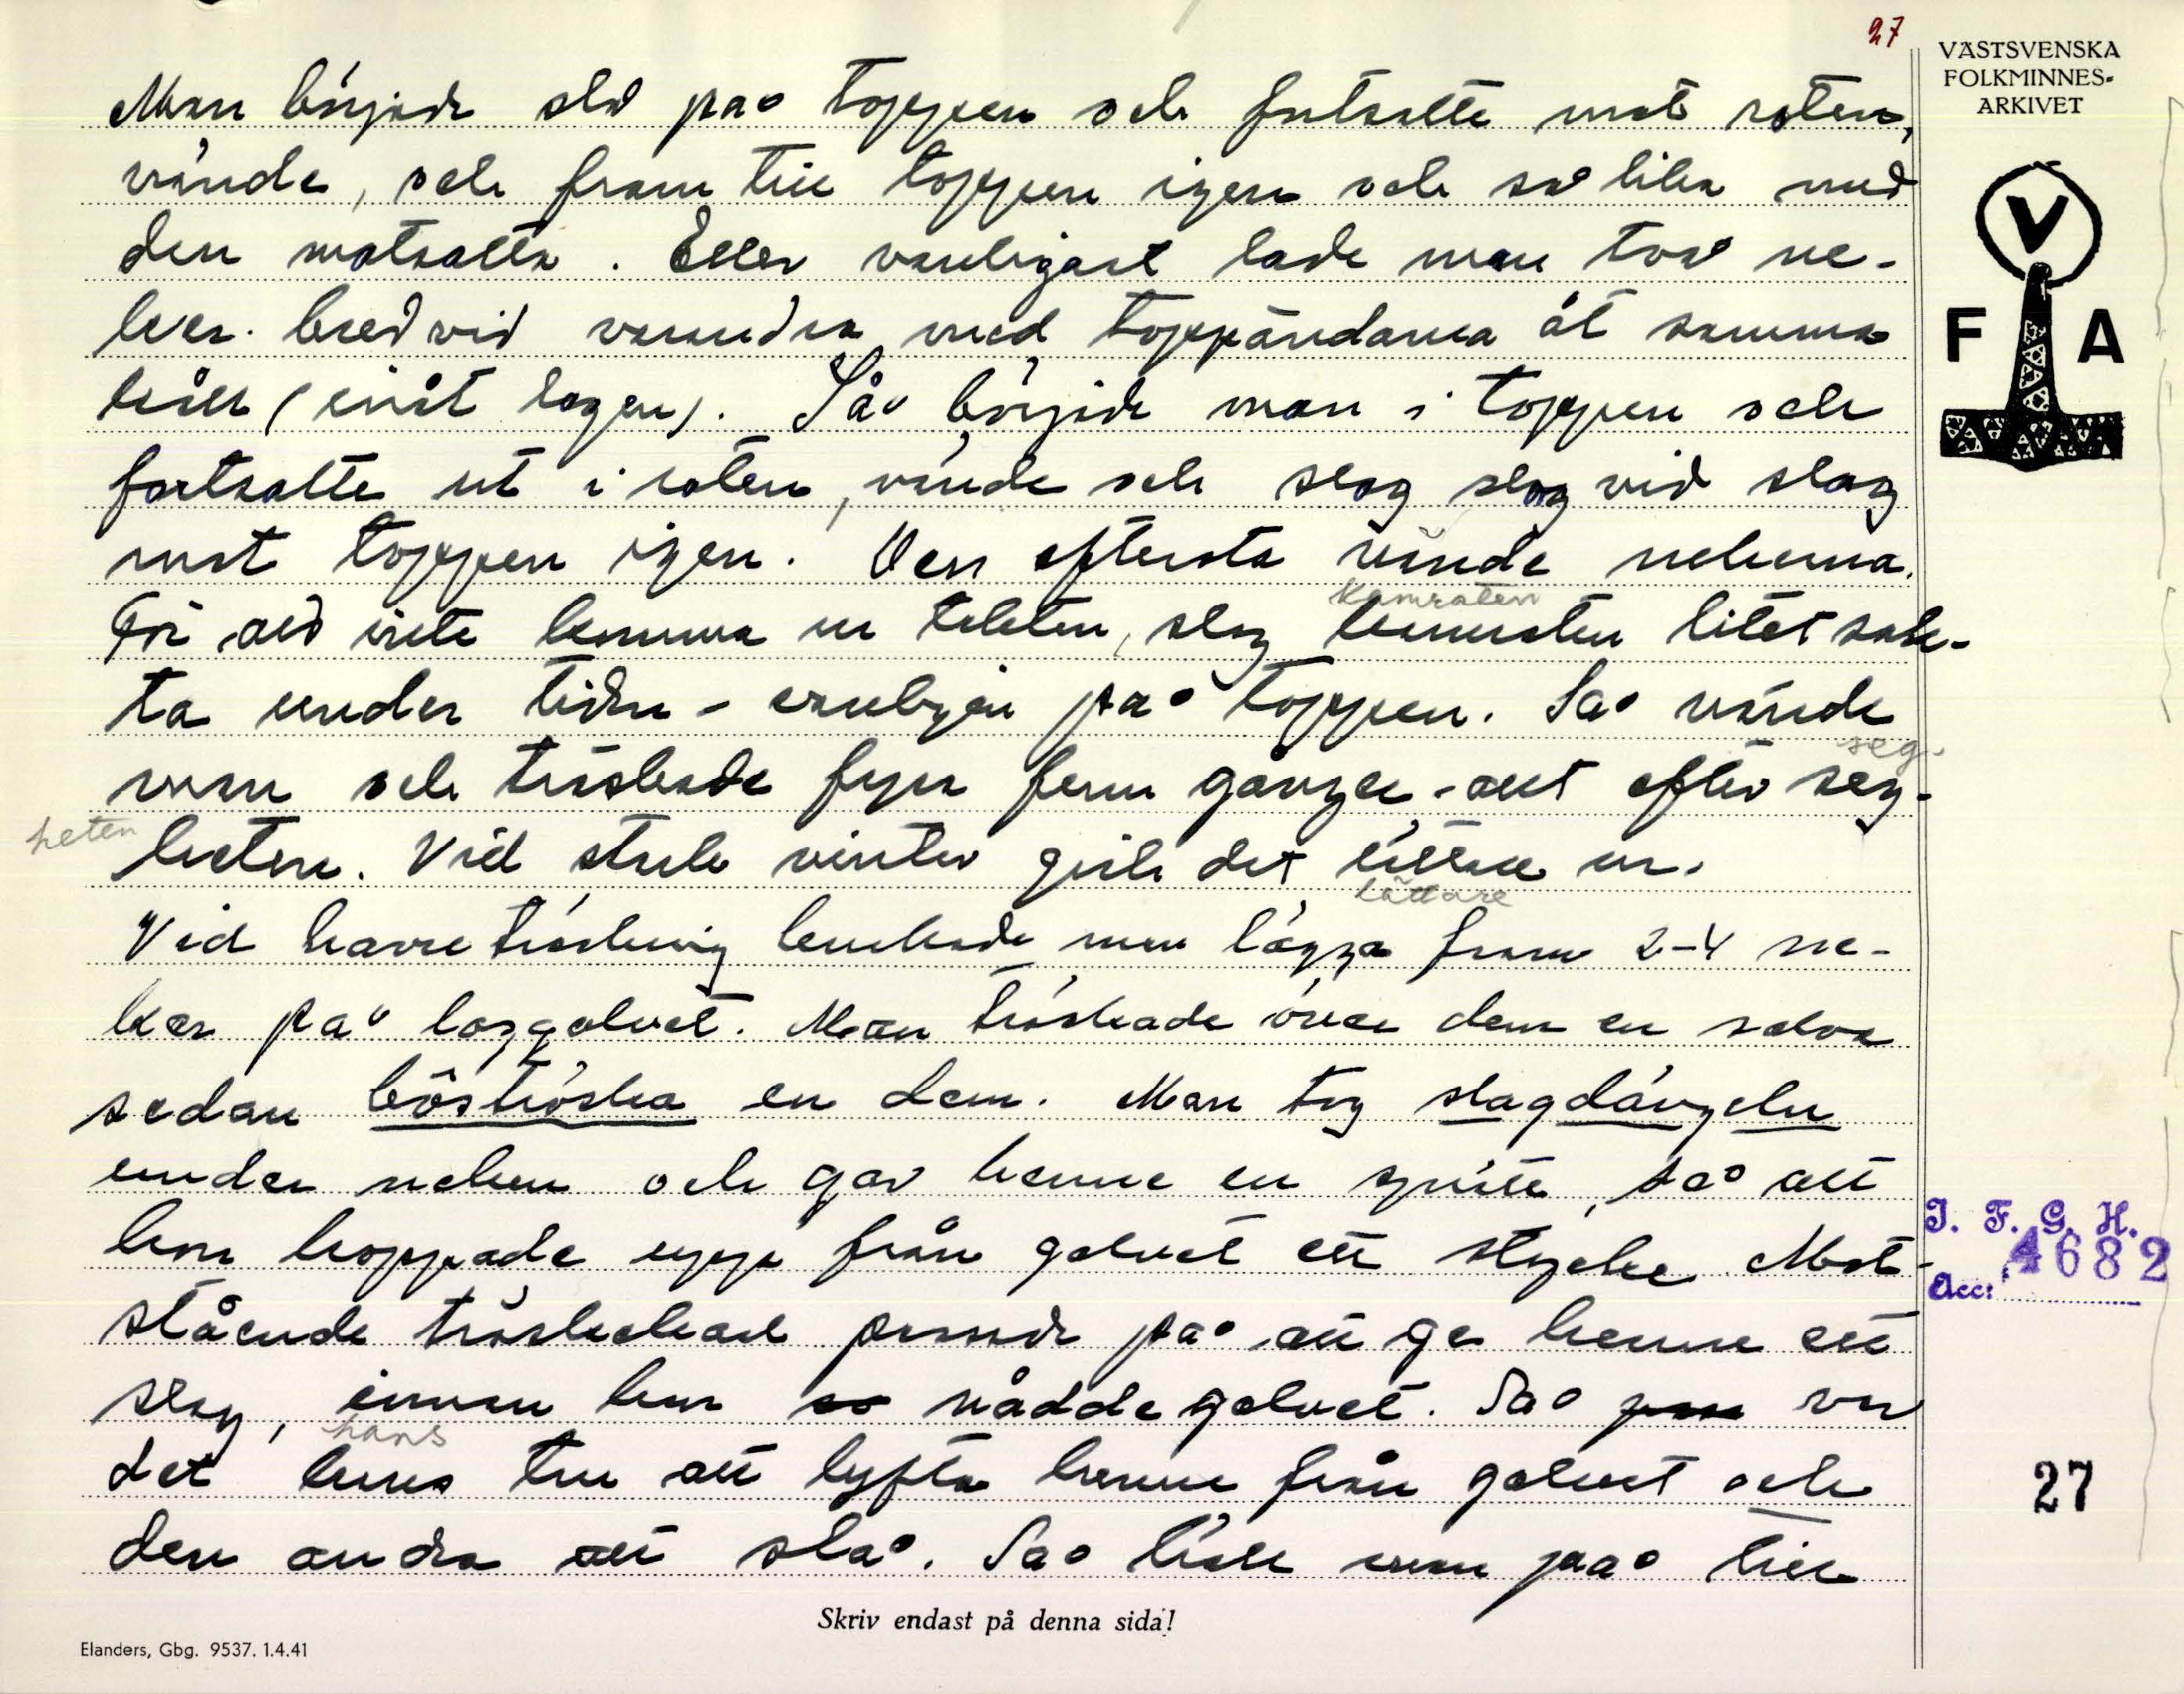 27
VÄSTSVENSKA
FOLKMINNES-
ARKIVET
Man började slå på toppen och fortsatte mot roten,
vände, och fram till toppen igen och så lika med
den motsatta. Eller vanligast lade man två ne-
ker bredvid varandra med toppändarna åt samma
håll (inåt logen). Så började man i toppen och
fortsatte ut i roten, vände och slog slag vid slag
mot toppen igen. Den eftersta vände nekerna.
kamraten
För att inte komma ur takten, slog kamraten litet sak-
ta under tiden - emellan på toppen. Så vände
seg-
man och tröskade fyra fem gånger, allt efter seg-
heten
heten. Vid stark vinter gick det lättare ur.
lättare
Vid havretröskning brukade man lägga fram 2-4 ne-
ker på loggolvet. Man tröskade över dem en
sedan böströska en dem. Man tog slagdängeln
under neken och gav henne en så att
hon hoppade upp från golvet ett stycke. Mot-
stående tröskekarl passade på att ge henne ett
slag, innan hon nådde golvet. Så var
hans
det hans tur att lyfta henne från golvet och
den andra att slå. Så höll man på till
V
F A
I. F. G. H.
4682
Acc:
27
Skriv endast på denna sida!
Elanders, Gbg. 9537. 1.4.41